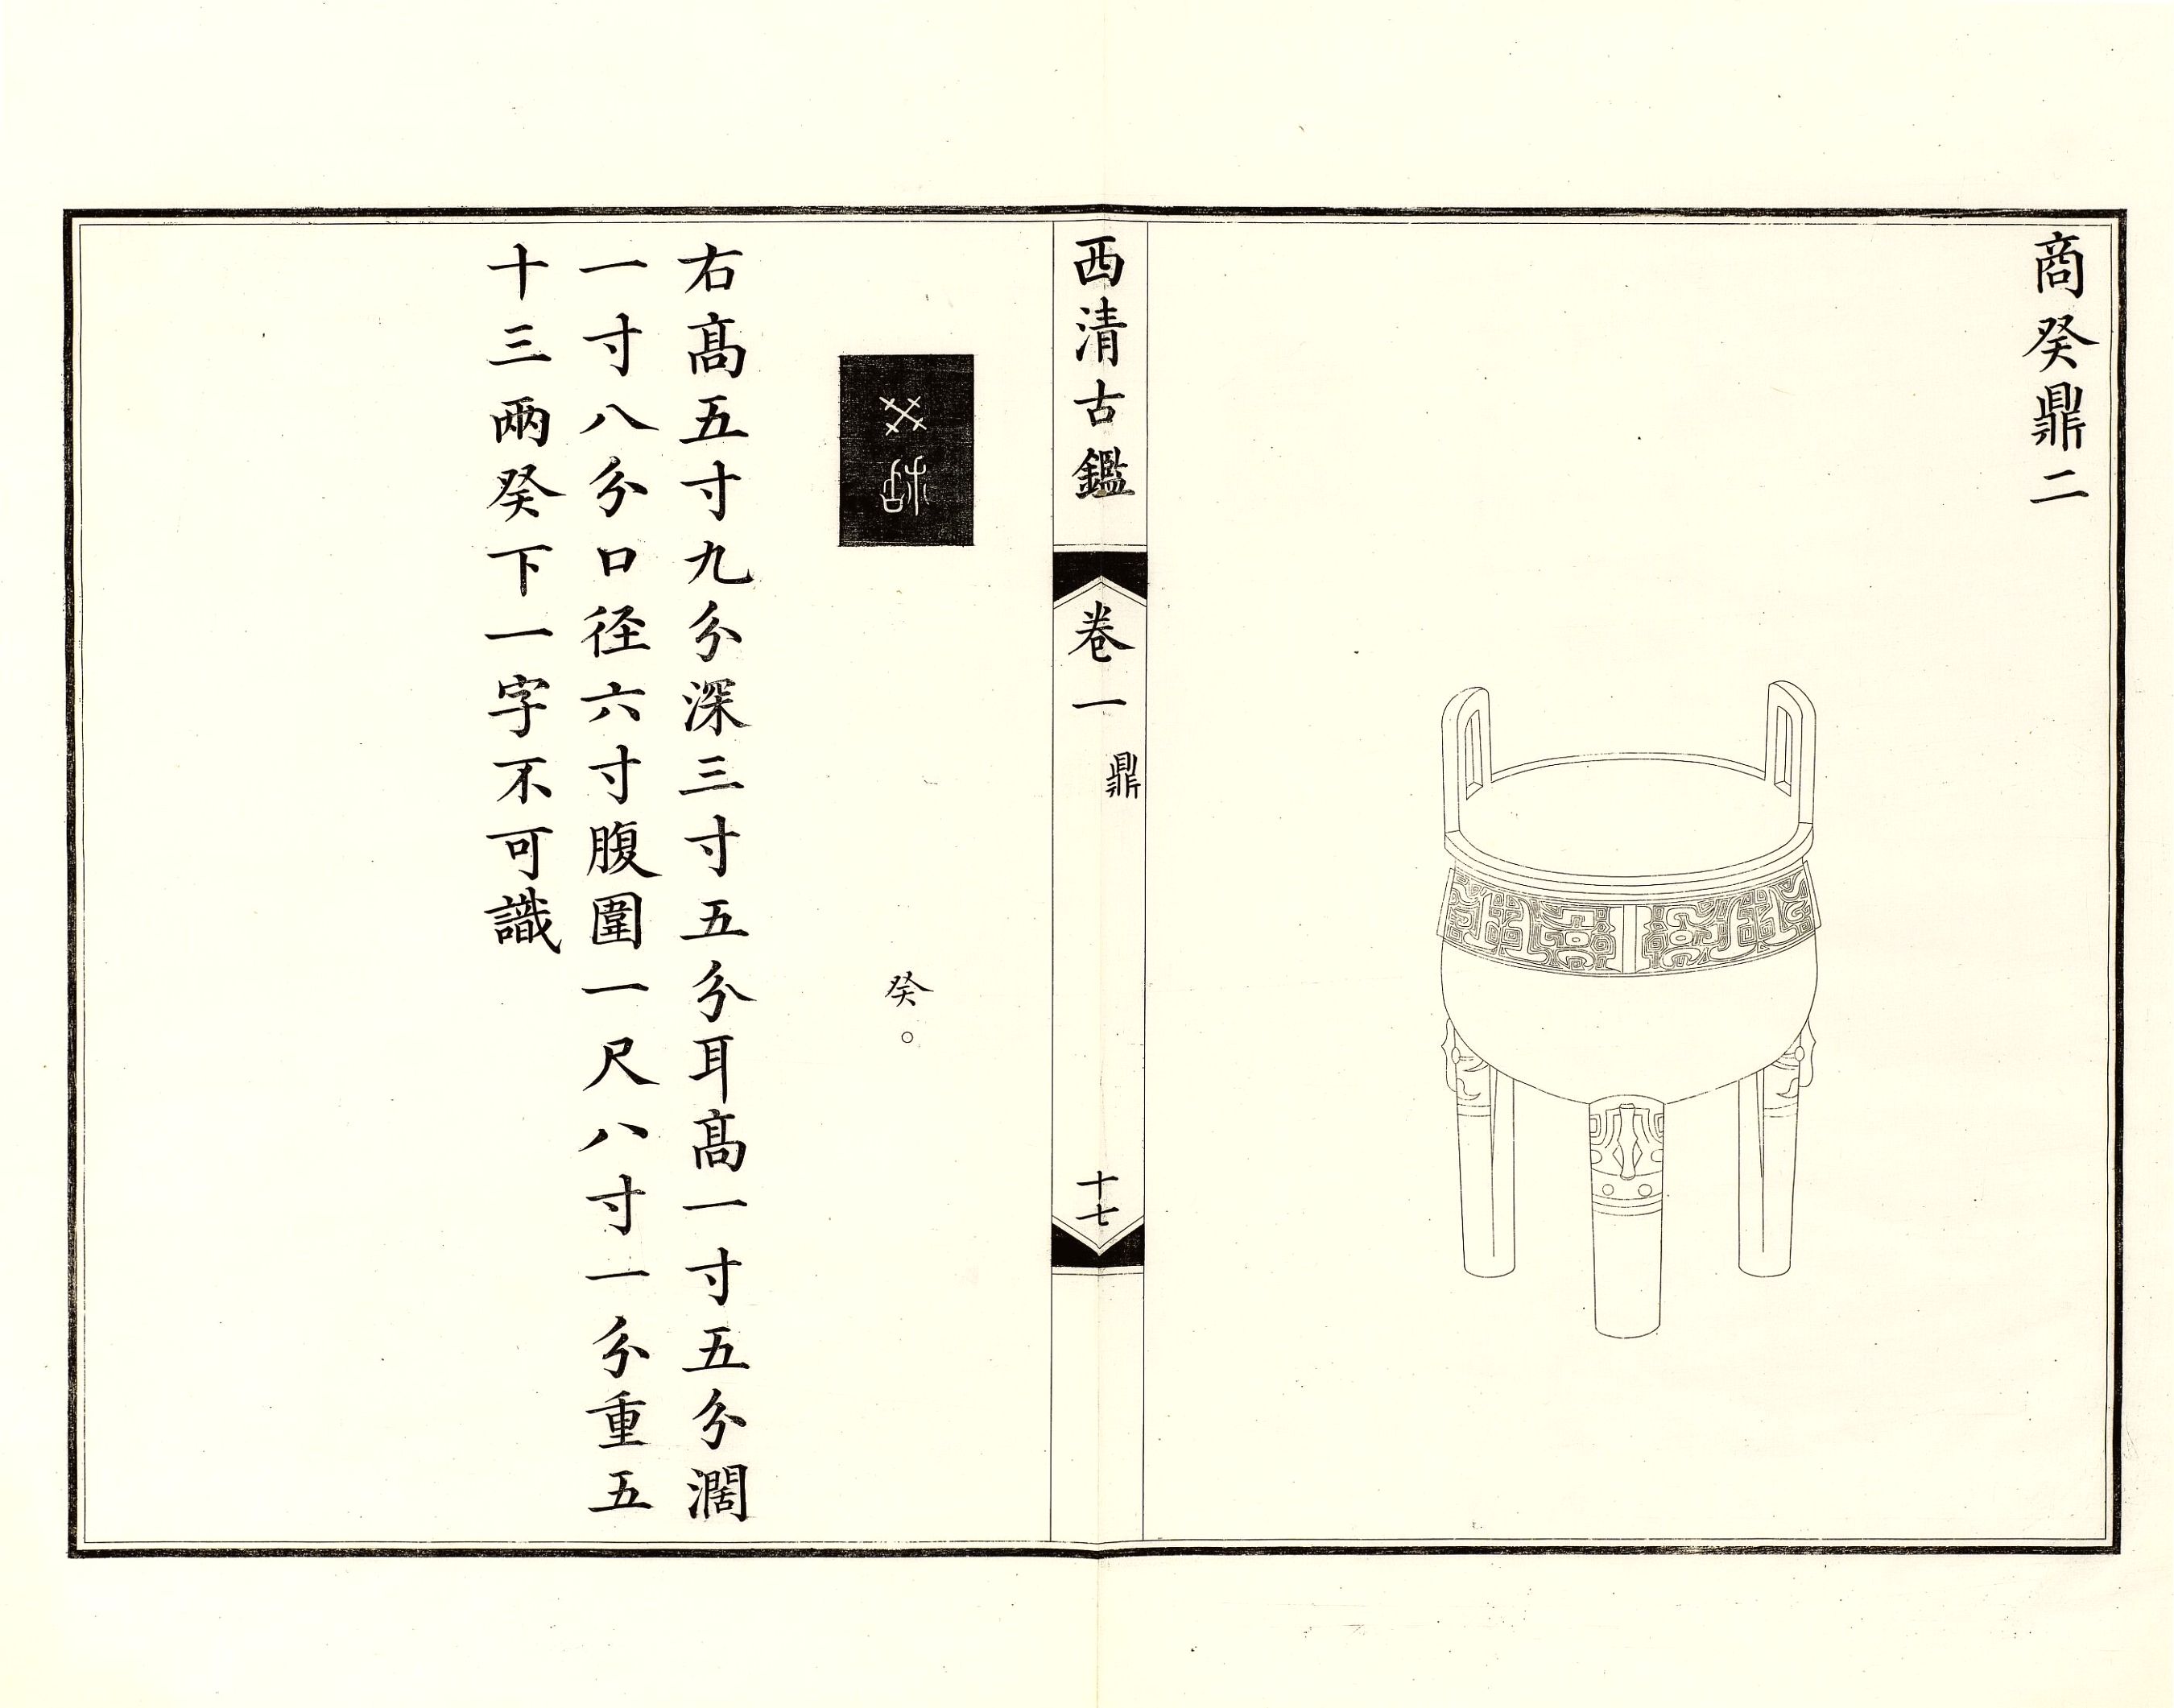 商癸鼎二
西清古鑑
卷一
鼎
十七
癸○
右高五寸九分深三寸五分耳高一寸五分濶
一寸八分口径六寸腹圍一尺八寸一分重五
十三兩癸下一字不可識